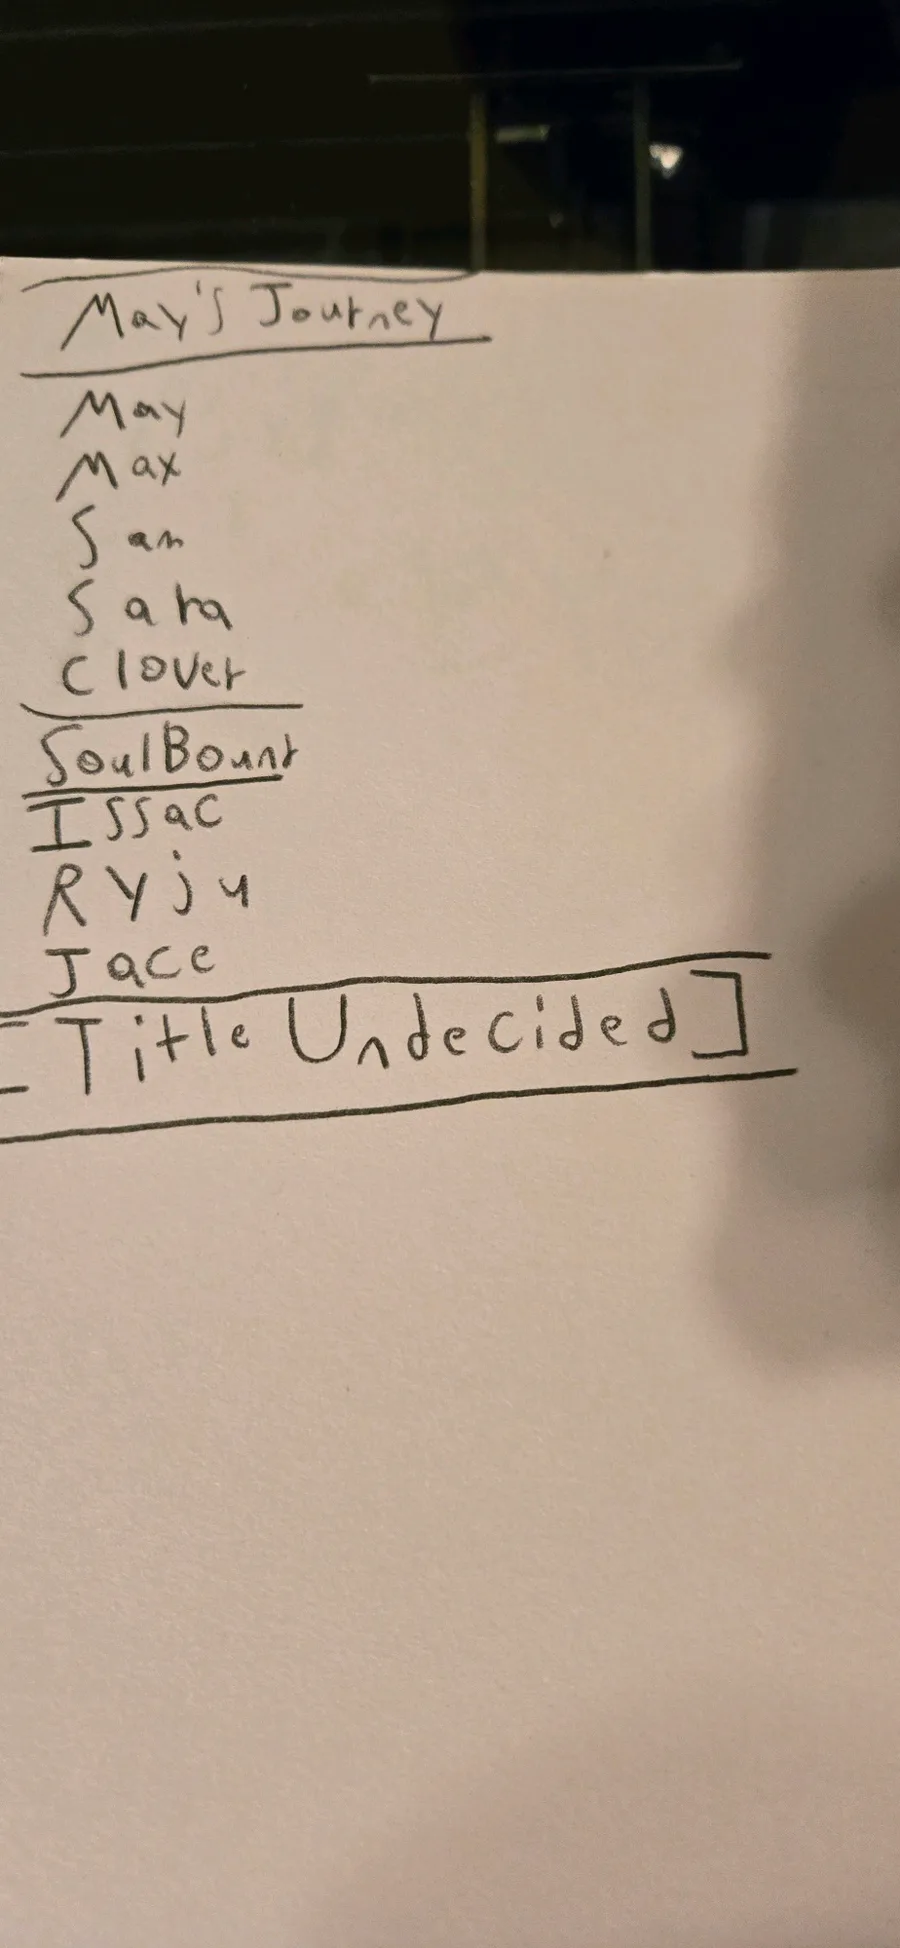 May's Journey
May
Max
Sam
Sara
Clover
SoulBount
Issac
Ryju
Jace
[Title Undecided]